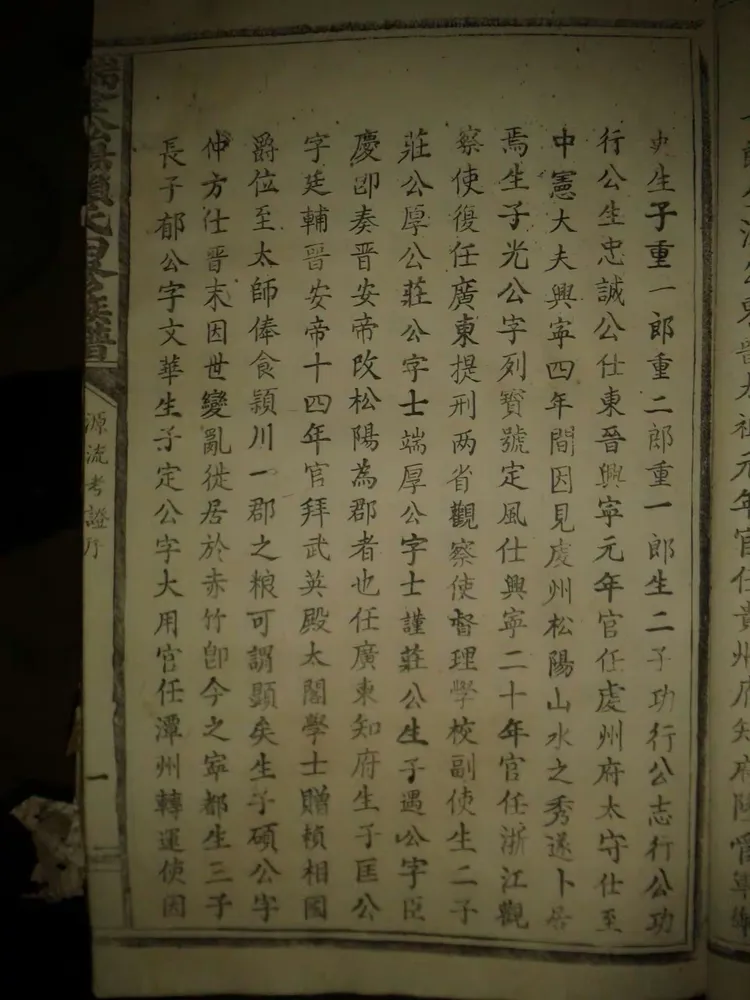 史生子重一郎重二郎重一郎生二子功行公志行公功
行公生忠誠公仕東晉興寧元年官任處州府太守仕至
中憲大夫興寧四年間因見處州松陽山水之秀遂卜居
焉生子光公字列賢號定風仕興寧二十年官任浙江觀
察使復任廣東提刑两省觀察使督理學校副使生二子
莊公厚公莊公字士端厚公字士謹莊公生子遇公字臣
慶卽奏晉安帝改松陽為郡者也任廣東知府生子匡公
字廷輔晉安帝十四年官拜武英殿太閣學士贈楨相國
爵位至太師俸食潁川一郡之粮可謂顯矣生子碩公字
仲方仕晉末因世變亂徙居於赤竹卽今之寧都生三子
長子郁公字文華生子定公字大用官任潭州轉運使因
源流考證序
一
公東晉
元年官任貴州府知府陞